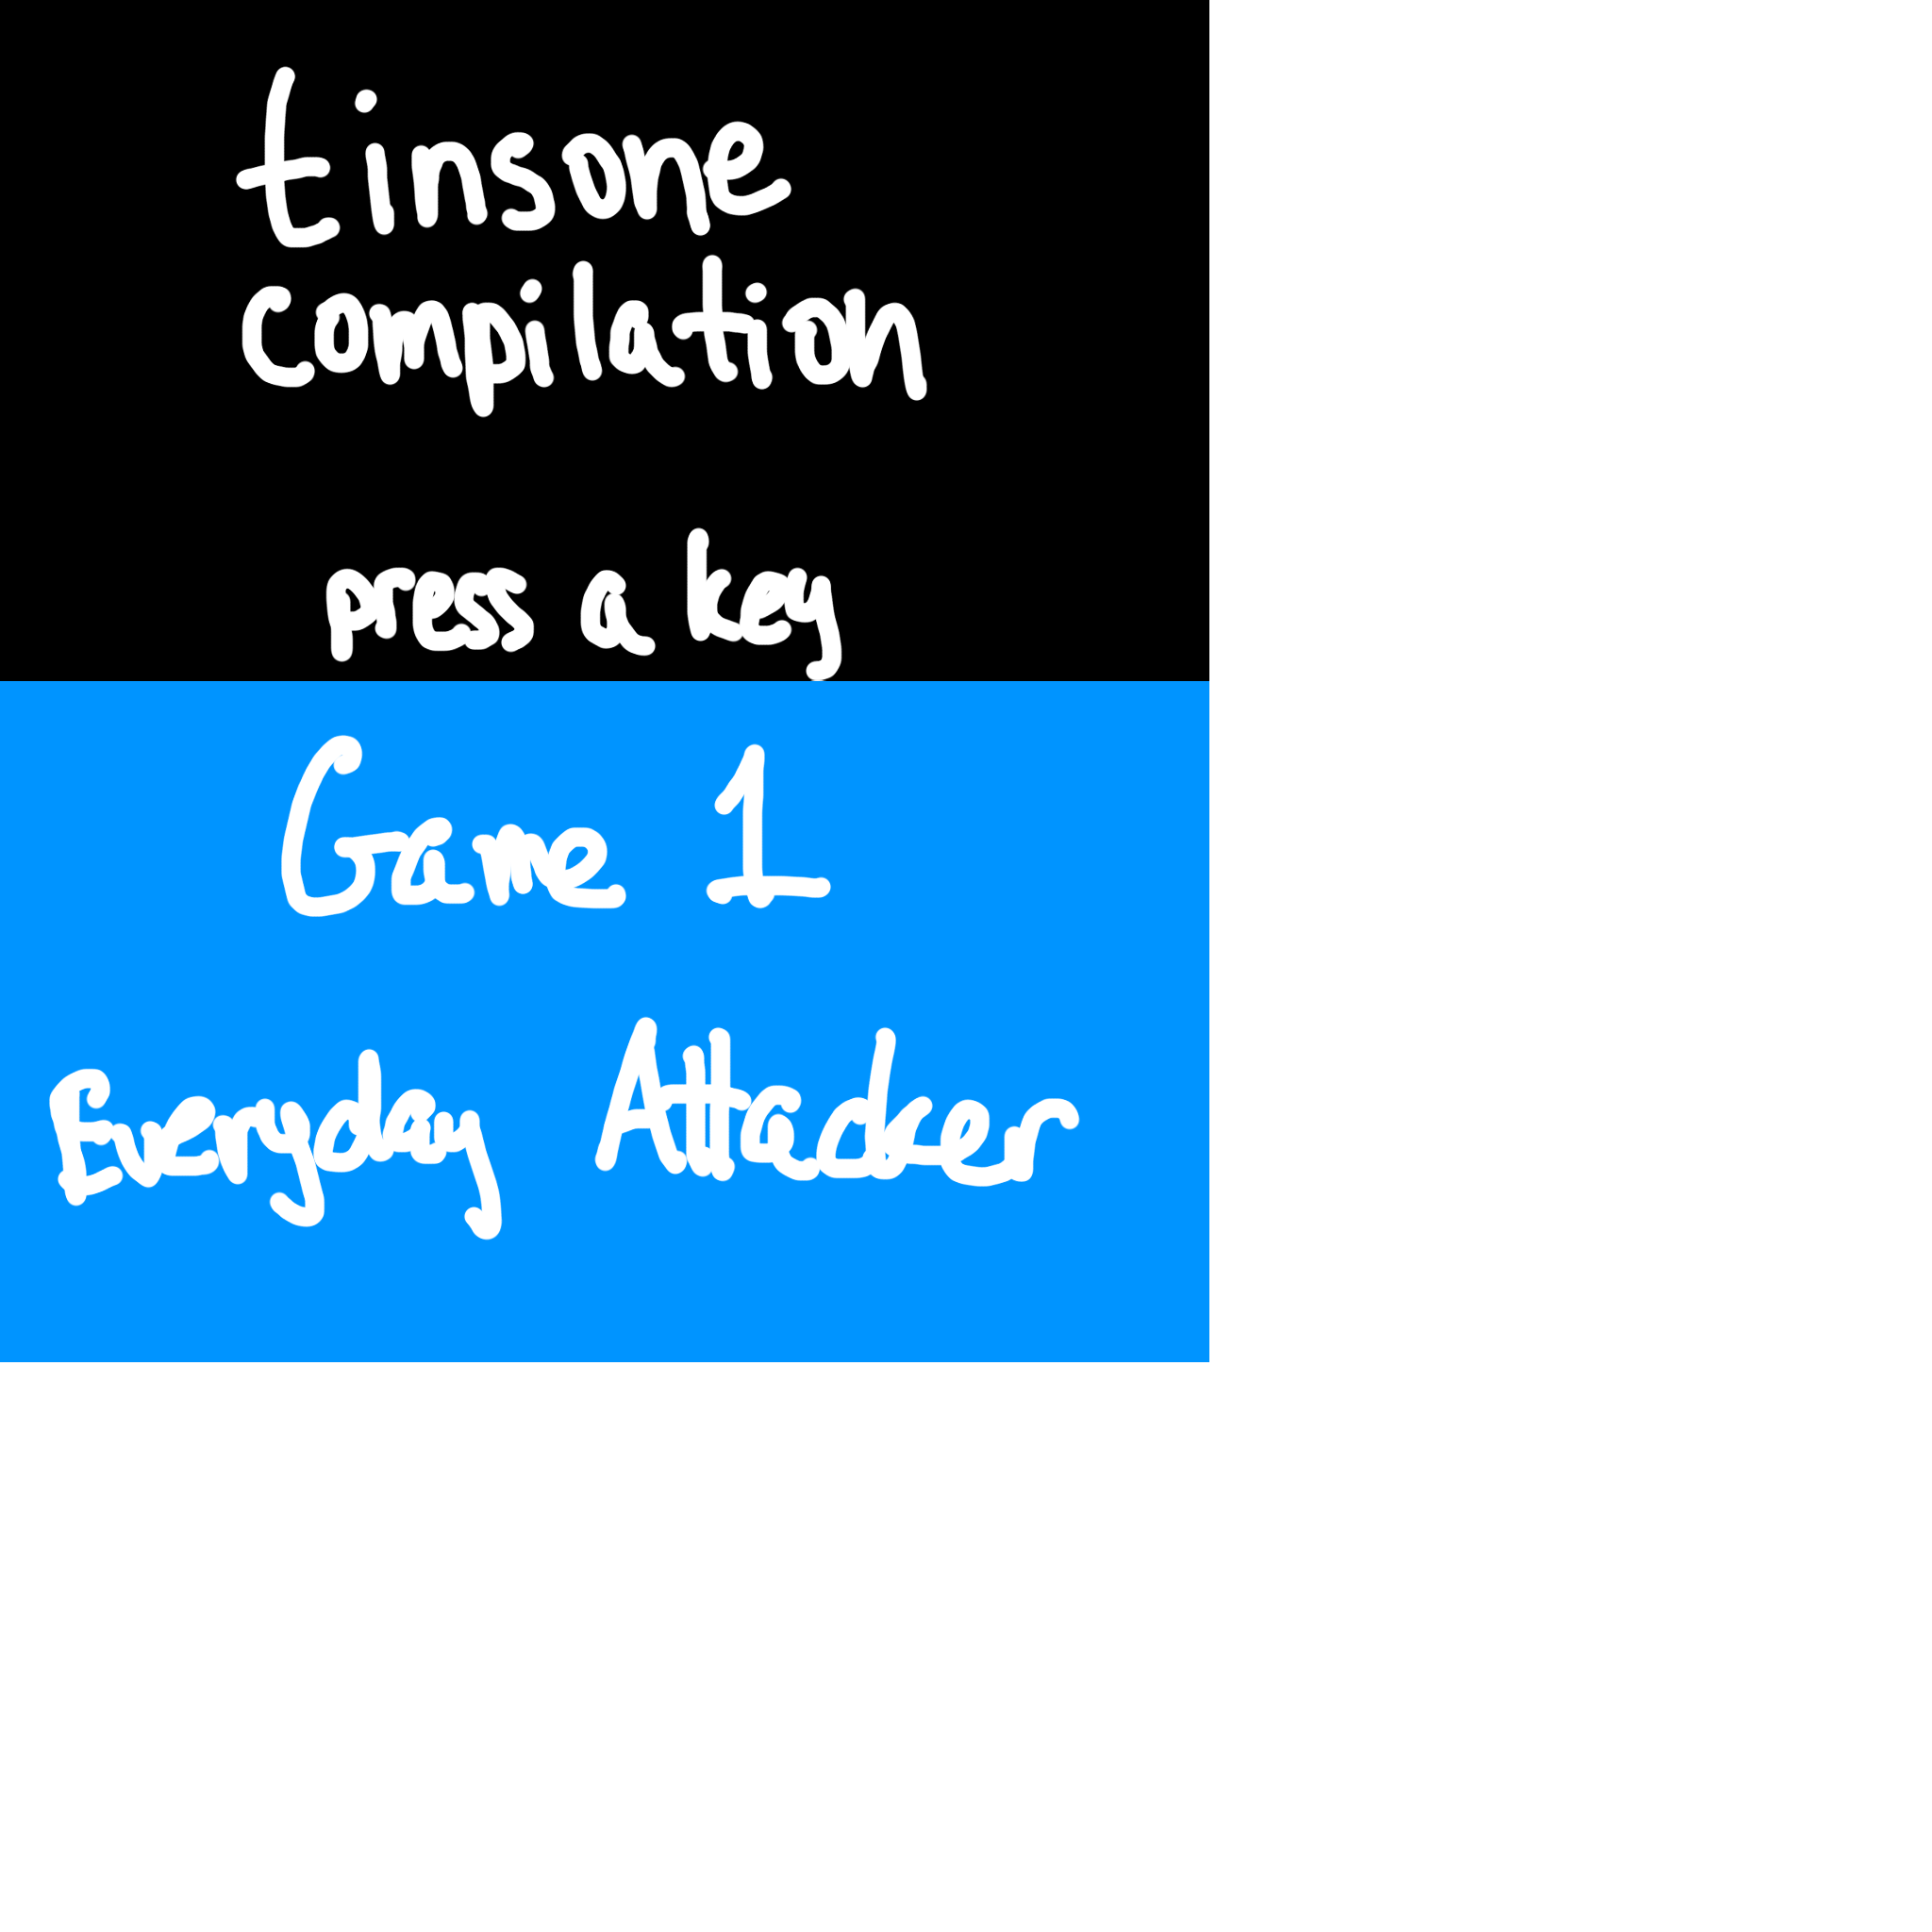 tinsone
compilation
press a key
Game 1
Everyday Attacker